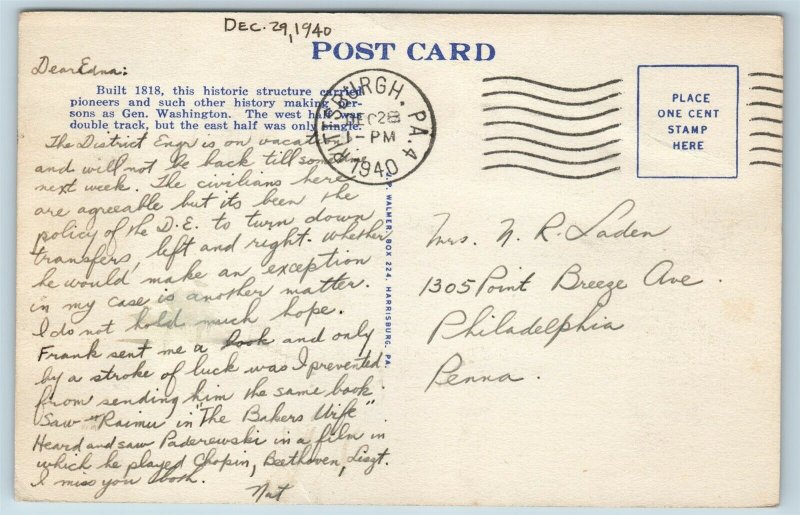 DEC. 29, 1940
POST CARD
Dear Edna:
Built 1818, this historic structure carried
pioneers and such other history making per-
sons as Gen. Washington. The west half was
double track, but the east half was only single.
PITTSBURGH, PA. 4
DEC 28
1 - PM
1940
PLACE
ONE CENT
STAMP
HERE
The District Engr is on vacation
and will not be back till some time
next week. The civilians here
are agreeable but its been the
policy of the D.E. to turn down
transfers, left and right. Whether
he would make an exception
in my case is another matter.
I do not hold much hope.
Frank sent me a book and only
by a stroke of luck was I prevented
from sending him the same book
Saw "Raimu" in "The Bakers Wife".
Heard and saw Paderewski in a film in
which he played Chopin, Beethoven, Liszt.
I miss you
Nat
WALMER, BOX 224, HARRISBURG, PA.
Mrs. N. R. Laden
1305 Point Breeze Ave.
Philadelphia
Penna.